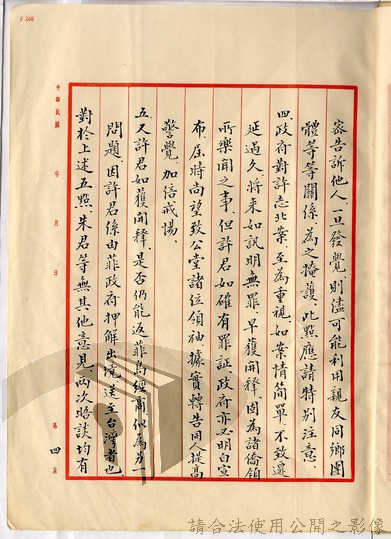 F 268
密告訴他人,一旦發覺,則儘可能利用親友同鄉團
體等等關係,為之掩護,此點應請特別注意.
四.政府對許志北案,至為重視,如案情簡單,不致遷
延過久,將來如訊明無罪,早獲開釋,固為諸僑領
所樂聞之事,但許君如確有罪証,政府亦必明白宣
布,屆時尚望致公堂諸位領袖,據實轉告同人,提高
警覺,加倍戒惕.
五.又許君如獲開釋,是否仍能返菲島經商,似為另一
問題,因許君係由菲政府押解出境,送至台灣者也.
對於上述五點,朱君等無其他意見,兩次晤談均有
中華民國 年 月 日
第 四 頁
請合法使用公開之影像